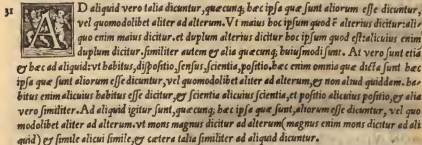 31 AD aliquid vero talia dicuntur, quæcunq; hæc ipsa quæ sunt aliorum esse dicuntur,
vel quomodolibet aliter ad alterum. Vt maius hoc ipsum quod ẽ alterius dicitur: ali-
quo enim maius dicitur. et duplum alterius dicitur hoc ipsum quod est: alicuius enim
duplum dicitur. similiter autem & alia quæcunq; huiusmodi sunt. At vero sunt etiã
& hæc ad aliquid: vt habitus, dispositio, sensus, scientia, positio. hæc enim omnia quæ dicta sunt hæc
ipsa quæ sunt aliorum esse dicuntur, vel quomodolibet aliter ad alterum, & non aliud quiddam. ha-
bitus enim alicuius habitus esse dicitur, & scientia alicuius scientia, et positio alicuius positio, & alia
vero similiter. Ad aliquid igitur sunt, quæcunq; hæc ipsa quæ sunt, aliorum esse dicuntur, vel quo
modolibet aliter ad alterum. vt mons magnus dicitur ad alterum (magnus enim mons dicitur ad ali
quid) & simile alicui simile, & cætera talia similiter ad aliquid dicuntur.